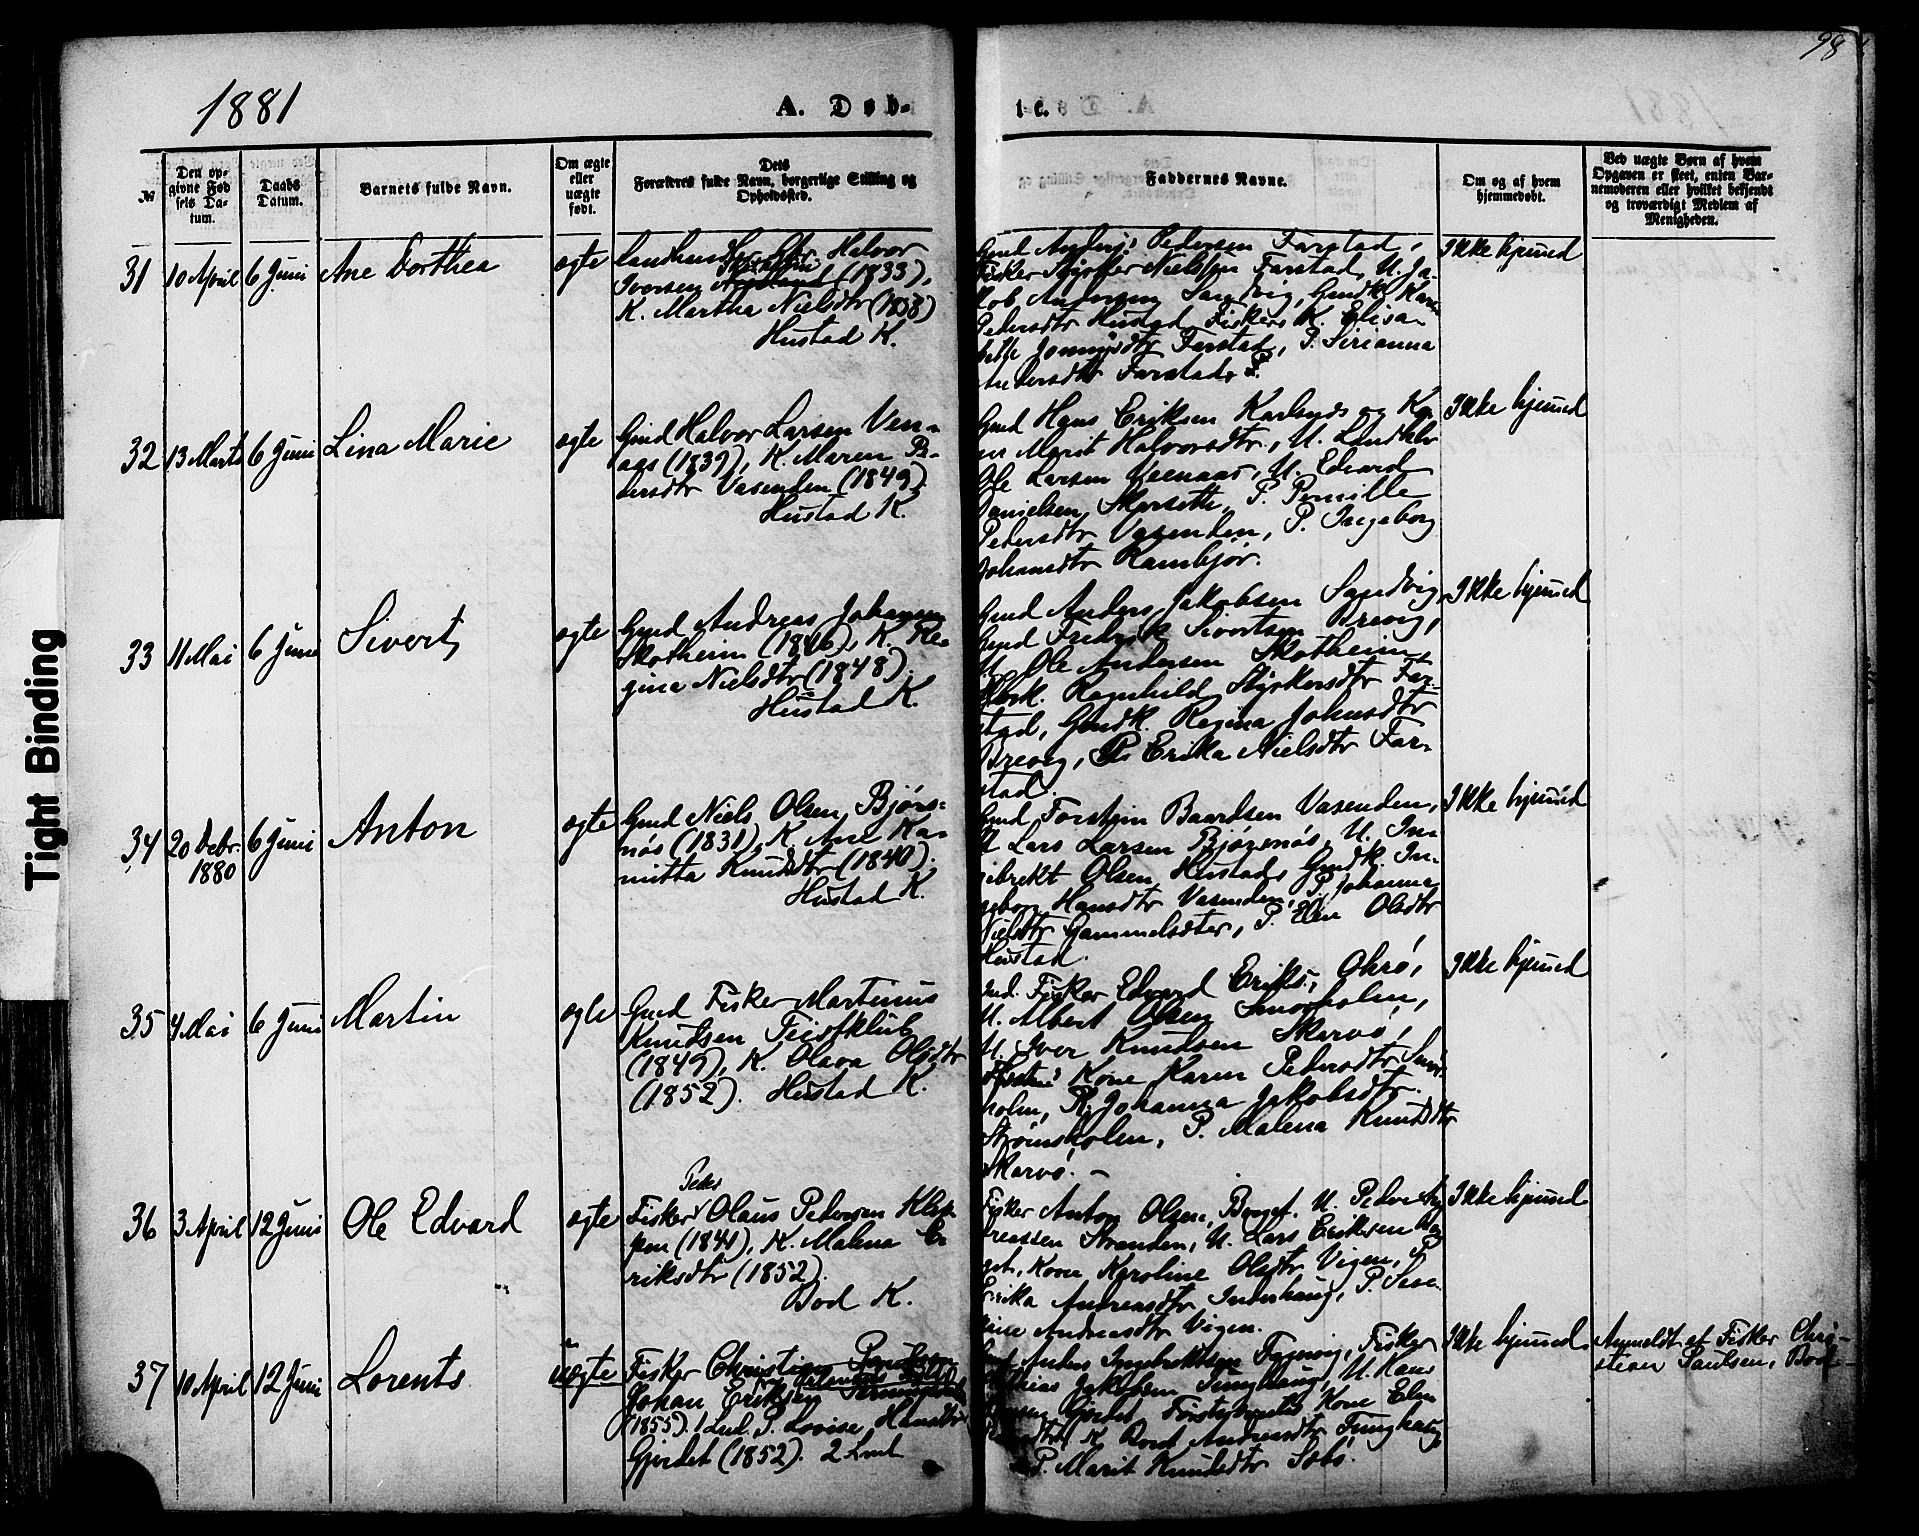 98
1881
A. Døb-
te.
№
Den op-
givne Fød
sels Da-
tum.
Daabs
Datum.
Barnets fulde Navn.
Om ægte
eller
uægte
født.
Dets
Forældres fulde Navn, borgerlige Stilling og
Opholdssted.
Faddernes Navne.
Om og af hvem
hjemmedøbt.
Ved uægte Børn af hvem
Opgaven er skeet, enten Bar-
nemoderen eller hvilket bekjendt
og troværdigt Medlem af
Menigheden.
31 10 April 6 Juni Ane Dorthea ægte
Halvor
Iversen (1833),
K. Martha Nielsdtr (1838)
Hustad K.
Gmd Anders Pedersen Farstad,
Fisker Styrker Nielsen Farstad, U. Ja-
kob Andersen Sandvig, Gmdk Kari
Pedersdtr Hustad, Fiskers K. Elisa-
beth Farstad, P. Sirianna
Andersdtr Farstad.
Ikke hjemmd
32 13 Marts 6 Juni Lina Marie ægte
Gmd Halvor Larsen Ven-
aas (1839), K. Maren Pe-
dersdtr Vasenden (1849)
Hustad K.
Gmd Hans Eriksen Karlsnes og Ko-
ne Marit Halvorsdtr, U. Landhdlr
Ole Larsen Venaas, U. Edvard
Danielsen Skarseth, P. Pernille
Pedersdtr Vasenden, P. Ingeborg
Johansdtr Rambjør.
Ikke hjemmd
33 11 Mai 6 Juni Sivert ægte
Gmd Andreas Johansen
Skotheim (1846), K. Re-
gine Nielsdtr (1848).
Hustad K.
Gmd Anders Jakobsen Sandvig,
Gmd Fredrik Sivertsen Breivig,
U. Ole Andersen Skotheim,
Ragnhild Styrkersdtr Far-
stad, Gmdk. Regina Johnsdtr
Breivig, P. Erika Nielsdtr Far-
stad.
Ikke hjemmd
34 20 Debr. 6 Juni Anton ægte
1880
Gmd Niels Olsen Bjørs-
nøs (1831), K. Ane Ka-
mitta Knudsdtr (1840).
Hustad K.
Gmd Torstein Baardsen Vasenden,
U Lars Larsen Bjørsnøs, U. In-
gebrekt Olsen Hustad, Gmdk. In-
geborg Hansdtr Vasenden, P. Johanna
Nielsdtr Gammelsæter, P. Elen Olsdtr
Hustad.
Ikke hjemmd
35 4 Mai 6 Juni Martin ægte
Gmd Fisker Martinus
Knudsen Teistklub
(1849), K. Olava Olsdtr
(1852). Hustad K.
Gmd. Fisker Edvard Eriks. Okrø,
U. Albert Olsen Smørholm,
U. Iver Knudsen Skarvø,
Kone Karen Pedersdtr Smør-
holm, P. Johanna Jakobsdtr
Strømsholm, P. Malena Knudsdtr
Skarvø. -
Ikke hjemmd
36 3 April 12 Juni Ole Edvard ægte
Peder
Fisker Olaus Pedersen Klep-
pen (1841), K. Malena E-
riksdtr (1852).
Bod K.
Fisker Anton Olsen, Berget. U. Peder An-
dreassen Stranden, U. Lars Eriksen Ber-
get, Kone Karoline Olsdtr Vigen, P.
Erika Andreasdtr Inderhaug, P. Sere-
nine Andreasdtr Vigen.
Ikke hjemmd
37 10 April 12 Juni Lorents uægte
Fisker Christian
Johan Eriksen
(1855). 1 Led. P. Lovise Hansdtr
Gjerdet (1852). 2 Leiel
Anders Ingebrektsen, Fisker
Mathias Jakobsen Tunghaug, U. Hans
Hansen Gjerdet, Kone Elen
K Andreasdtr Tunghaug
P. Marit Knudsdtr Sebø.
Ikke hjemmd.
Anmeldt af Fisker Chri-
stian Paulsen, Bod.
Tight Binding